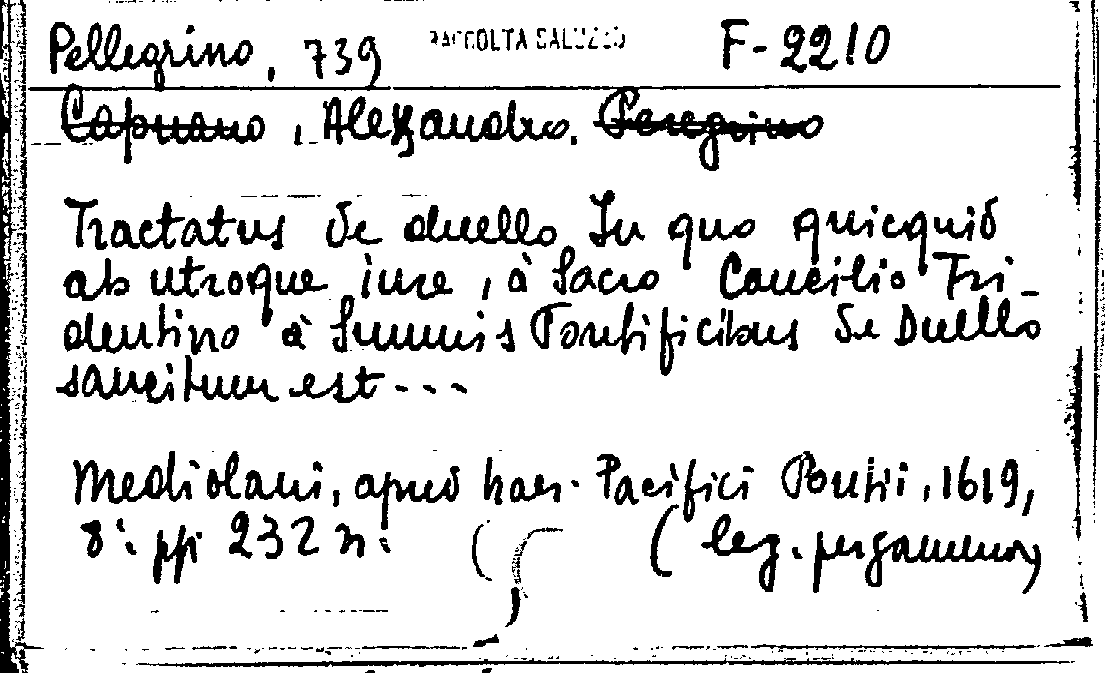 Pellegrino, 739 RACCOLTA SALUZZO F-2210
Capuano, Alessandro. Peregrino
Tractatus de duello. In quo quicquid
ab utroque iure, à Sacro Concilio Tri-
dentino à Summis Pontificibus de Duello
sancitum est---
Mediolani, apud haer. Pacifici Pontii, 1619,
8°. pp. 232 n. (leg. pergamena)